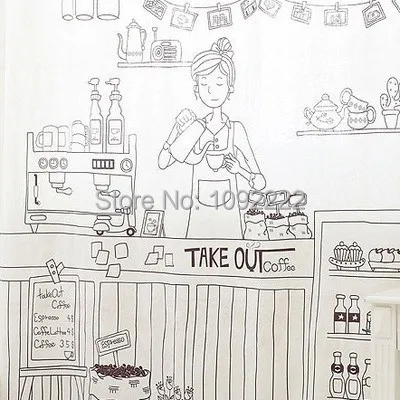 Store No: 1092922
TAKE OUT Coffee
takeOut
Coffee
Espresso 4$
CaffeLatte 4$
Coffee 3.5$
Espresso